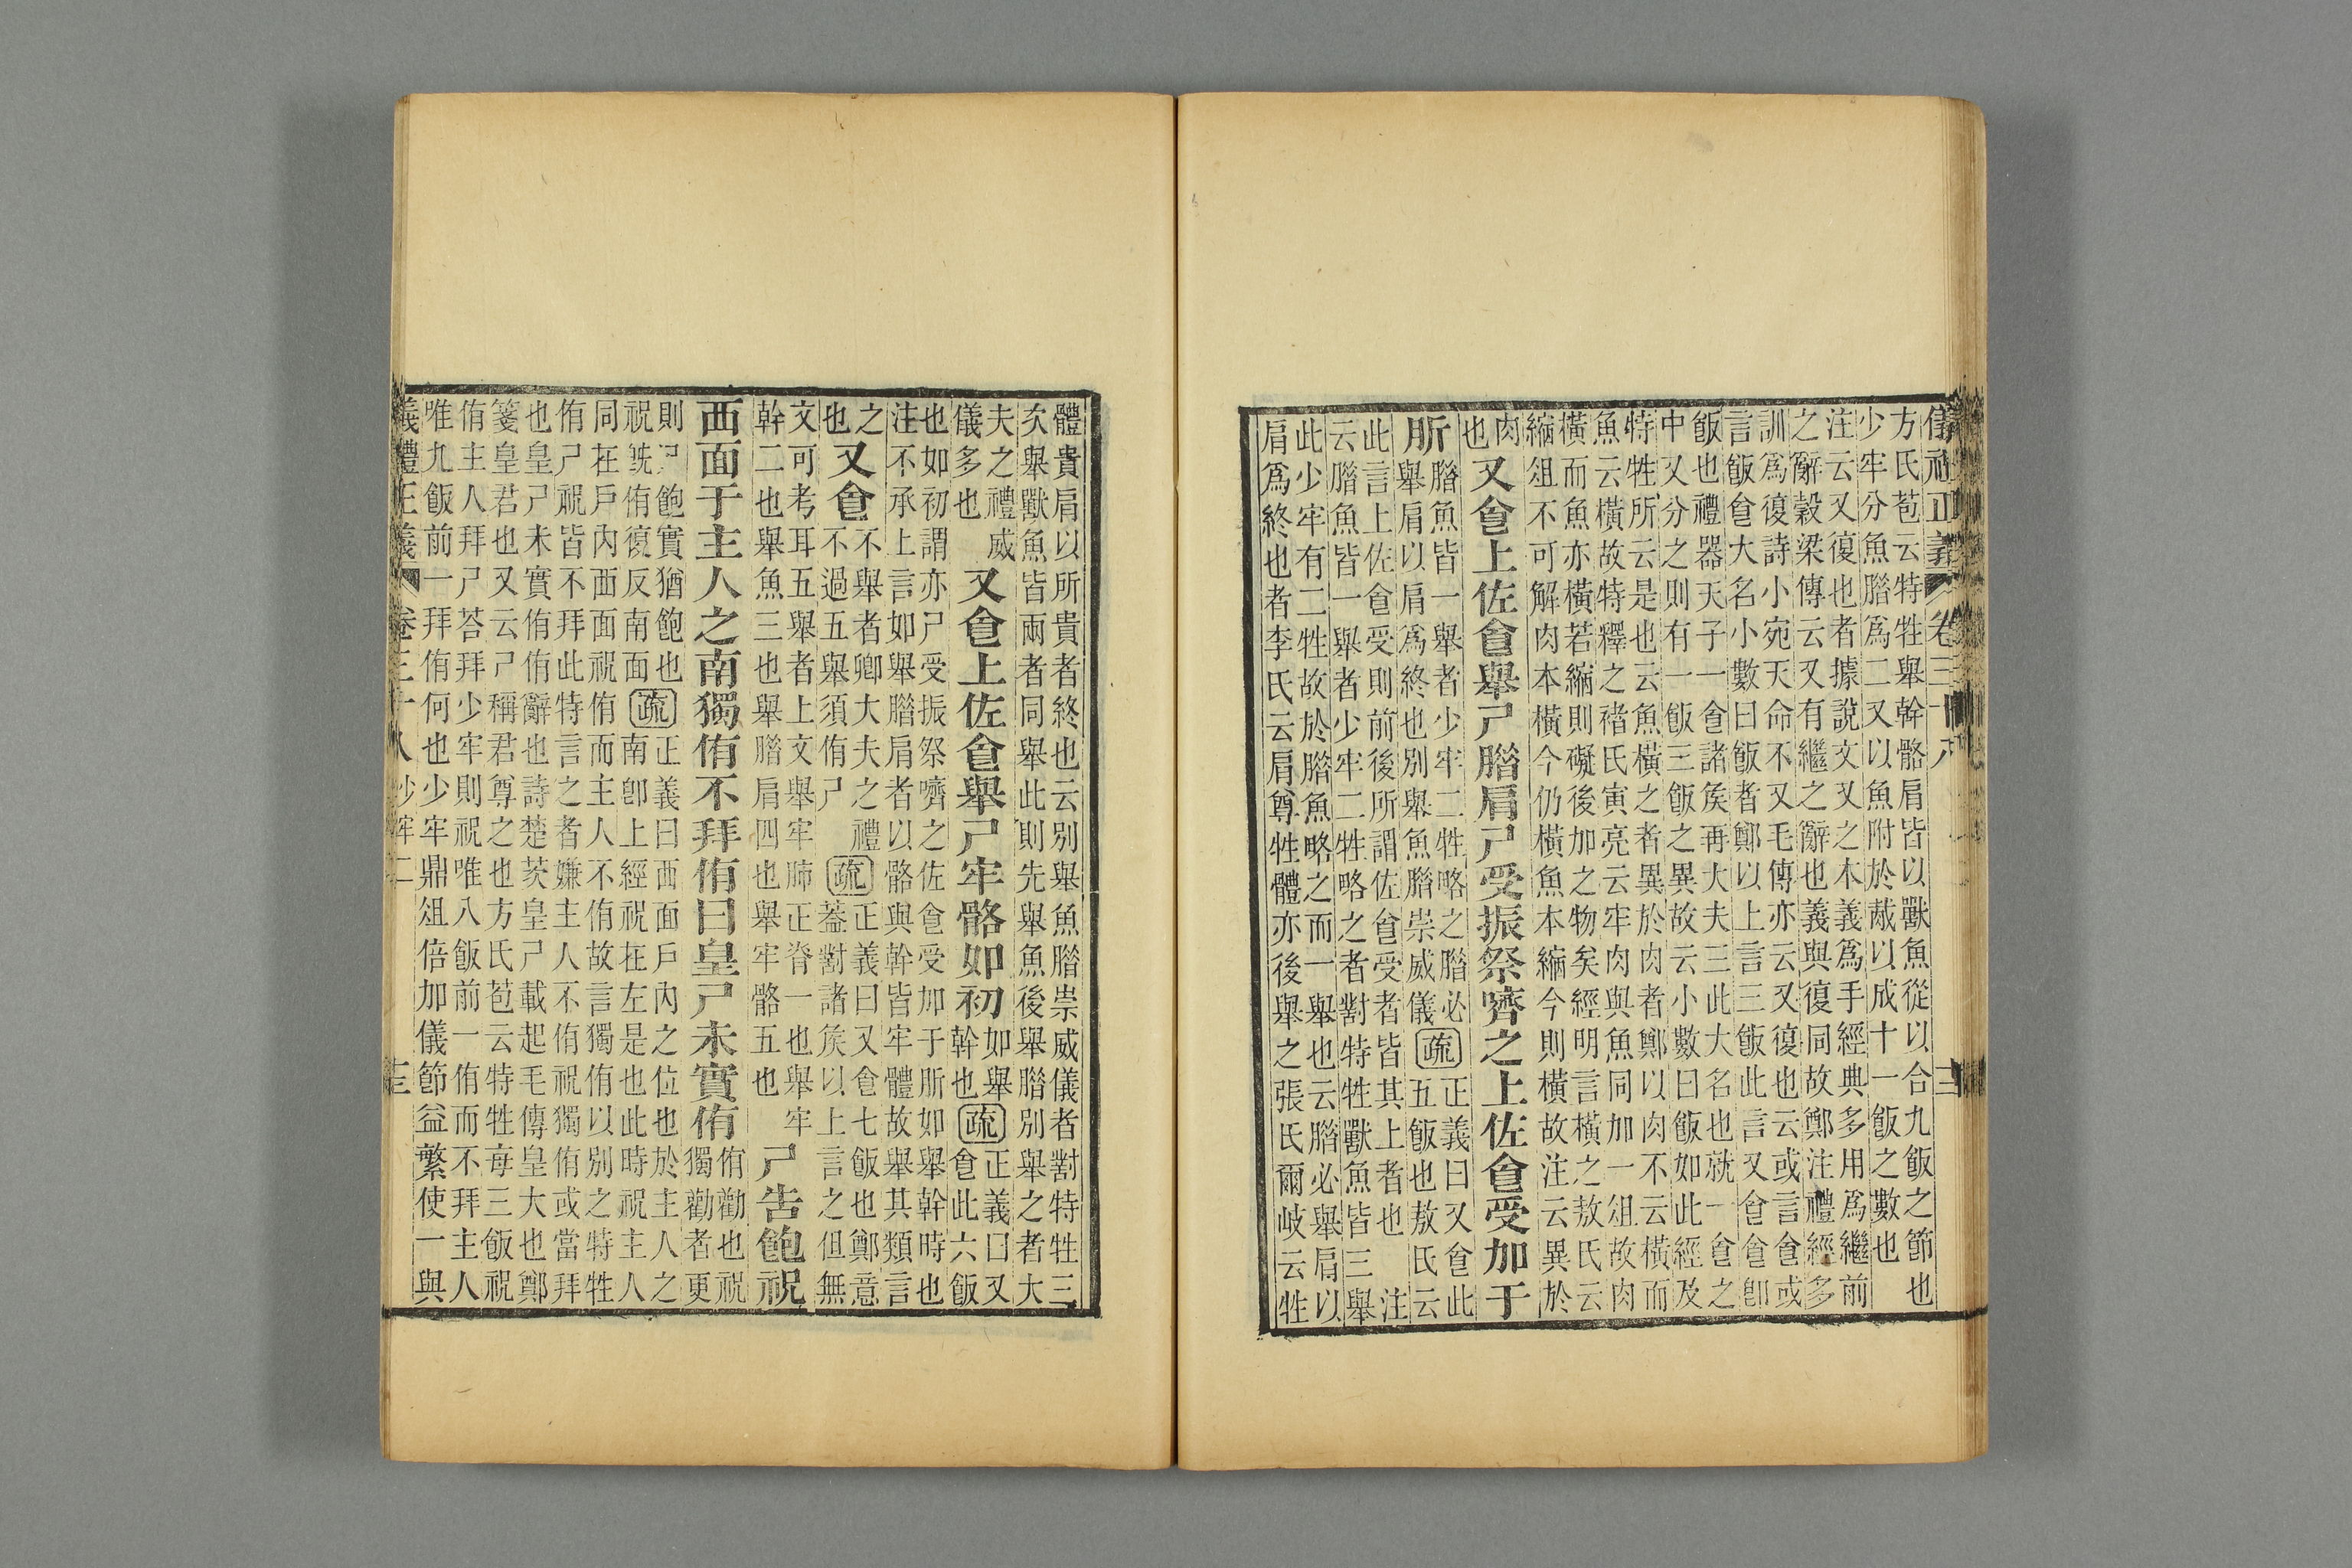 儀禮正義 卷三十八
方氏苞云特牲舉幹骼肩皆以獸魚從以合九飯之節也
少牢分魚腊爲二又以魚附於胾以成十一飯之數也
注云又復也者據說文又之本義爲手經典多用爲繼前
之辭穀梁傳云又有繼之辭也義與復同故鄭注禮經多
訓爲復詩小宛天命不又毛傳亦云又復也云或言食或
言飯食大名小數曰飯者鄭以上言三飯此言又食食卽
飯也禮器天子一食諸矦再大夫三此大名也就一食之
中又分之則有一飯三飯之異故云小數曰飯如此經及
特牲所云是也云魚橫之者異於肉者鄭以肉不云橫而
魚云橫故特釋之褚氏寅亮云牢肉與魚同加一俎故肉
橫而魚亦橫若縮則礙後加之物矣經明言橫之敖氏云
縮俎不可解肉本橫今仍橫魚本縮今則橫故注云異於
肉
也
又食上佐食舉尸腊肩尸受振祭嚌之上佐食受加于
肵
腊魚皆一舉者少牢二牲略之腊必
舉肩以肩爲終也別舉魚腊崇威儀
疏
正義曰又食此
五飯也敖氏云
此言上佐食受則前後所謂佐食受者皆其上者也 注
云腊魚皆一舉者少牢二牲略之者對特牲獸魚皆三舉
此少牢有二牲故於腊魚略之而一舉也云腊必舉肩以
肩爲終也者李氏云肩尊牲體亦後舉之張氏爾岐云牲
體貴肩以所貴者終也云別舉魚腊崇威儀者對特牲三
次舉獸魚皆兩者同舉此則先舉魚後舉腊別舉之者大
夫之禮威
儀多也
又食上佐食舉尸牢骼如初
如舉
幹也
疏
正義曰又
食此六飯
也如初謂亦尸受振祭嚌之佐食受加于肵如舉幹時也
注不承上言如舉腊肩者以骼與幹皆牢體故舉其類言
之
也
又食
不舉者卿大夫之禮
不過五舉須侑尸
疏
正義曰又食七飯也鄭意
蓋對諸矦以上言之但無
文可考耳五舉者上文舉牢肺正脊一也舉牢
幹二也舉魚三也舉腊肩四也舉牢骼五也
尸告飽祝
西面于主人之南獨侑不拜侑曰皇尸未實侑
侑勸也祝
獨勸者更
則尸飽實猶飽也
祝旣侑復反南面
疏
正義曰西面戶內之位也於主人之
南卽上經祝在左是也此時祝主人
同在戶內西面祝侑而主人不侑故言獨侑以別之特牲
侑尸祝皆不拜此特言之者嫌主人不侑祝獨侑或當拜
也皇尸未實侑侑辭也詩楚茨皇尸載起毛傳皇大也鄭
箋皇君也又云尸稱君尊之也方氏苞云特牲每三飯祝
侑主人拜尸荅拜少牢則祝唯八飯前一侑而不拜主人
唯九飯前一拜侑何也少牢鼎俎倍加儀節益繁使一與
儀禮正義 卷三十八 少牢二